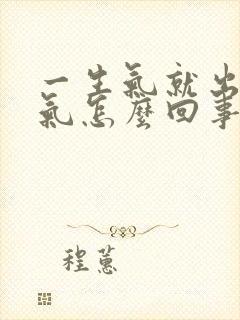 一生氣就出
氣怎麼回事
程蕙